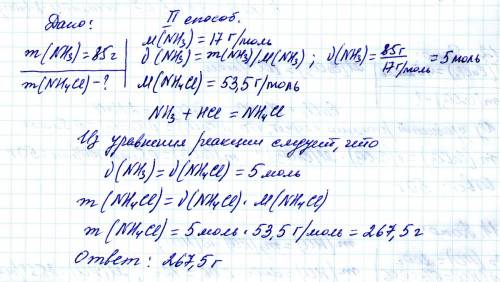 Дано: II способ.
m(NH₃)=85г
m(NH₄Cl)-?
M(NH₃)=17 г/моль
ν(NH₃)=m(NH₃)/M(NH₃); ν(NH₃)=85г/17г/моль=5моль
M(NH₄Cl)=53,5г/моль
NH₃+HCl=NH₄Cl
Из уравнения реакции следует, что
ν(NH₃)=ν(NH₄Cl)=5моль
m(NH₄Cl)=ν(NH₄Cl)·M(NH₄Cl)
m(NH₄Cl)=5моль·53,5г/моль=267,5г
Ответ: 267,5г